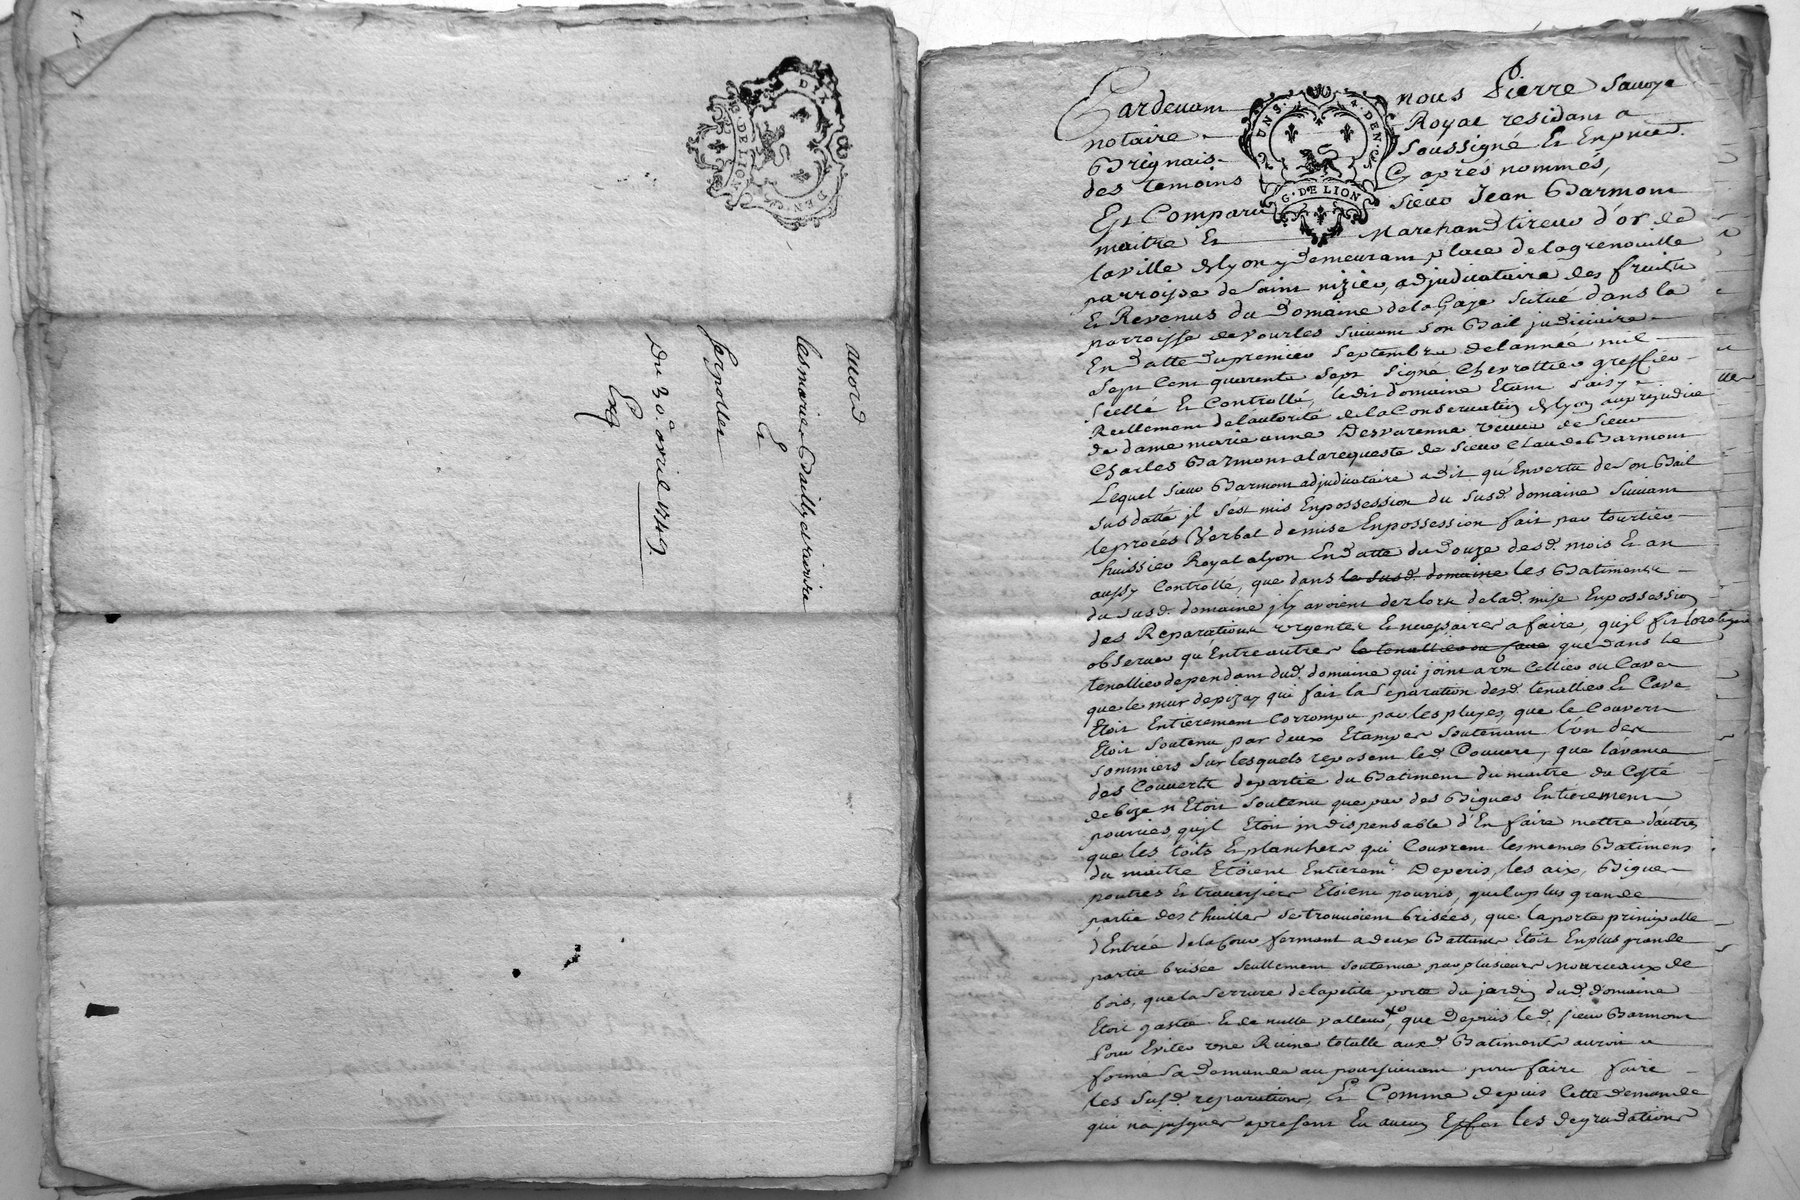 accord
les marier Bailly et riviere
&
Serpollet
Du 30e avril 1749
Exp
DIX
DEN.
G. DE LION
UNS. 4. DEN.
G. DE LION
Pardevant nous Pierre Sauoye
notaire Royal residant a
Brignais soussigné Et En pnce.
des temoins Cy aprés nommés,
Est Comparu sieur Jean Barmont
maitre Et Marchand tireur d'or de
la ville de lyon y demeurant place de la grenouille
parroisse de saint nizier, adjudicataire des fruits
Et Revenus du Domaine de la Gaje scitué dans la
parroisse de vourles suivant son Bail judiciaire
En datte du premier septembre de l'année mil
sept Cent quarente sept signé Chevrottier greffier
scellé Et Controllé, le dit domaine Etant saisy
Reellement de l'autorité de la Conservation de lyon au prejudice
de dame marie anne Desvarenne veuve de sieur
Charles Barmont a la requeste de sieur Claude Barmont
Lequel sieur Barmont adjudicataire a dit qu'En vertu de son Bail
sus datté il s'est mis En possession du susd. domaine suivant
le procés Verbal de mise En possession fait par tourlier
huissier Royal a lyon En datte du douze desd. mois Et an
aussy Controllé, que dans le susd. domaine les Batiments
du susd. domaine il y avoient dez lors de lad. mise En possession
des Reparations urgentes Et necessaires a faire, qu'il fit lors
observer qu'Entre autres le tenallier ou cave que dans le
tenallier dependant dud. domaine qui joint a un Cellier ou Cave
que le mur de pizay qui fait la separation desd. tenallier Et Cave
Etoit Entierement Corrompu par les pluyes, que le Couvert
Etoit soutenu par deux Etampes soutenant l'un des
sommiers sur lesquels reposent led. Couvert, que l'avance
des Couverts de partie du Batiment du maitre du Costé
de bize n'Etoit soutenu que par des Bigues Entierement
pourries, qu'il Etoit indispensable d'En faire mettre d'autres
que les toits Et planchers qui Couvrent les memes Batimens
du maitre Etoient Entierem.t Deperis, les aix, Bigues
poutres Et traversiers Etoient pourris, que la plus grande
partie des thuilles se trouvoient brisées, que la porte principalle
d'Entrée de la Cour fermant a deux Battants Etoit En plus grande
partie brisée seullement soutenue par plusieurs morceaux de
bois, que la serrure de la petite porte du jardin dud. domaine
Etoit gastée Et de nulle valleur, que depuis led. sieur Barmont
Pour Eviter une Ruine totalle auxd. Batiments auroit
formé sa demande au poursuivant pour faire faire
les susd. reparations, Et Comme depuis Cette demande
qui n'a jusques apresent Eu aucun Effet les degradations